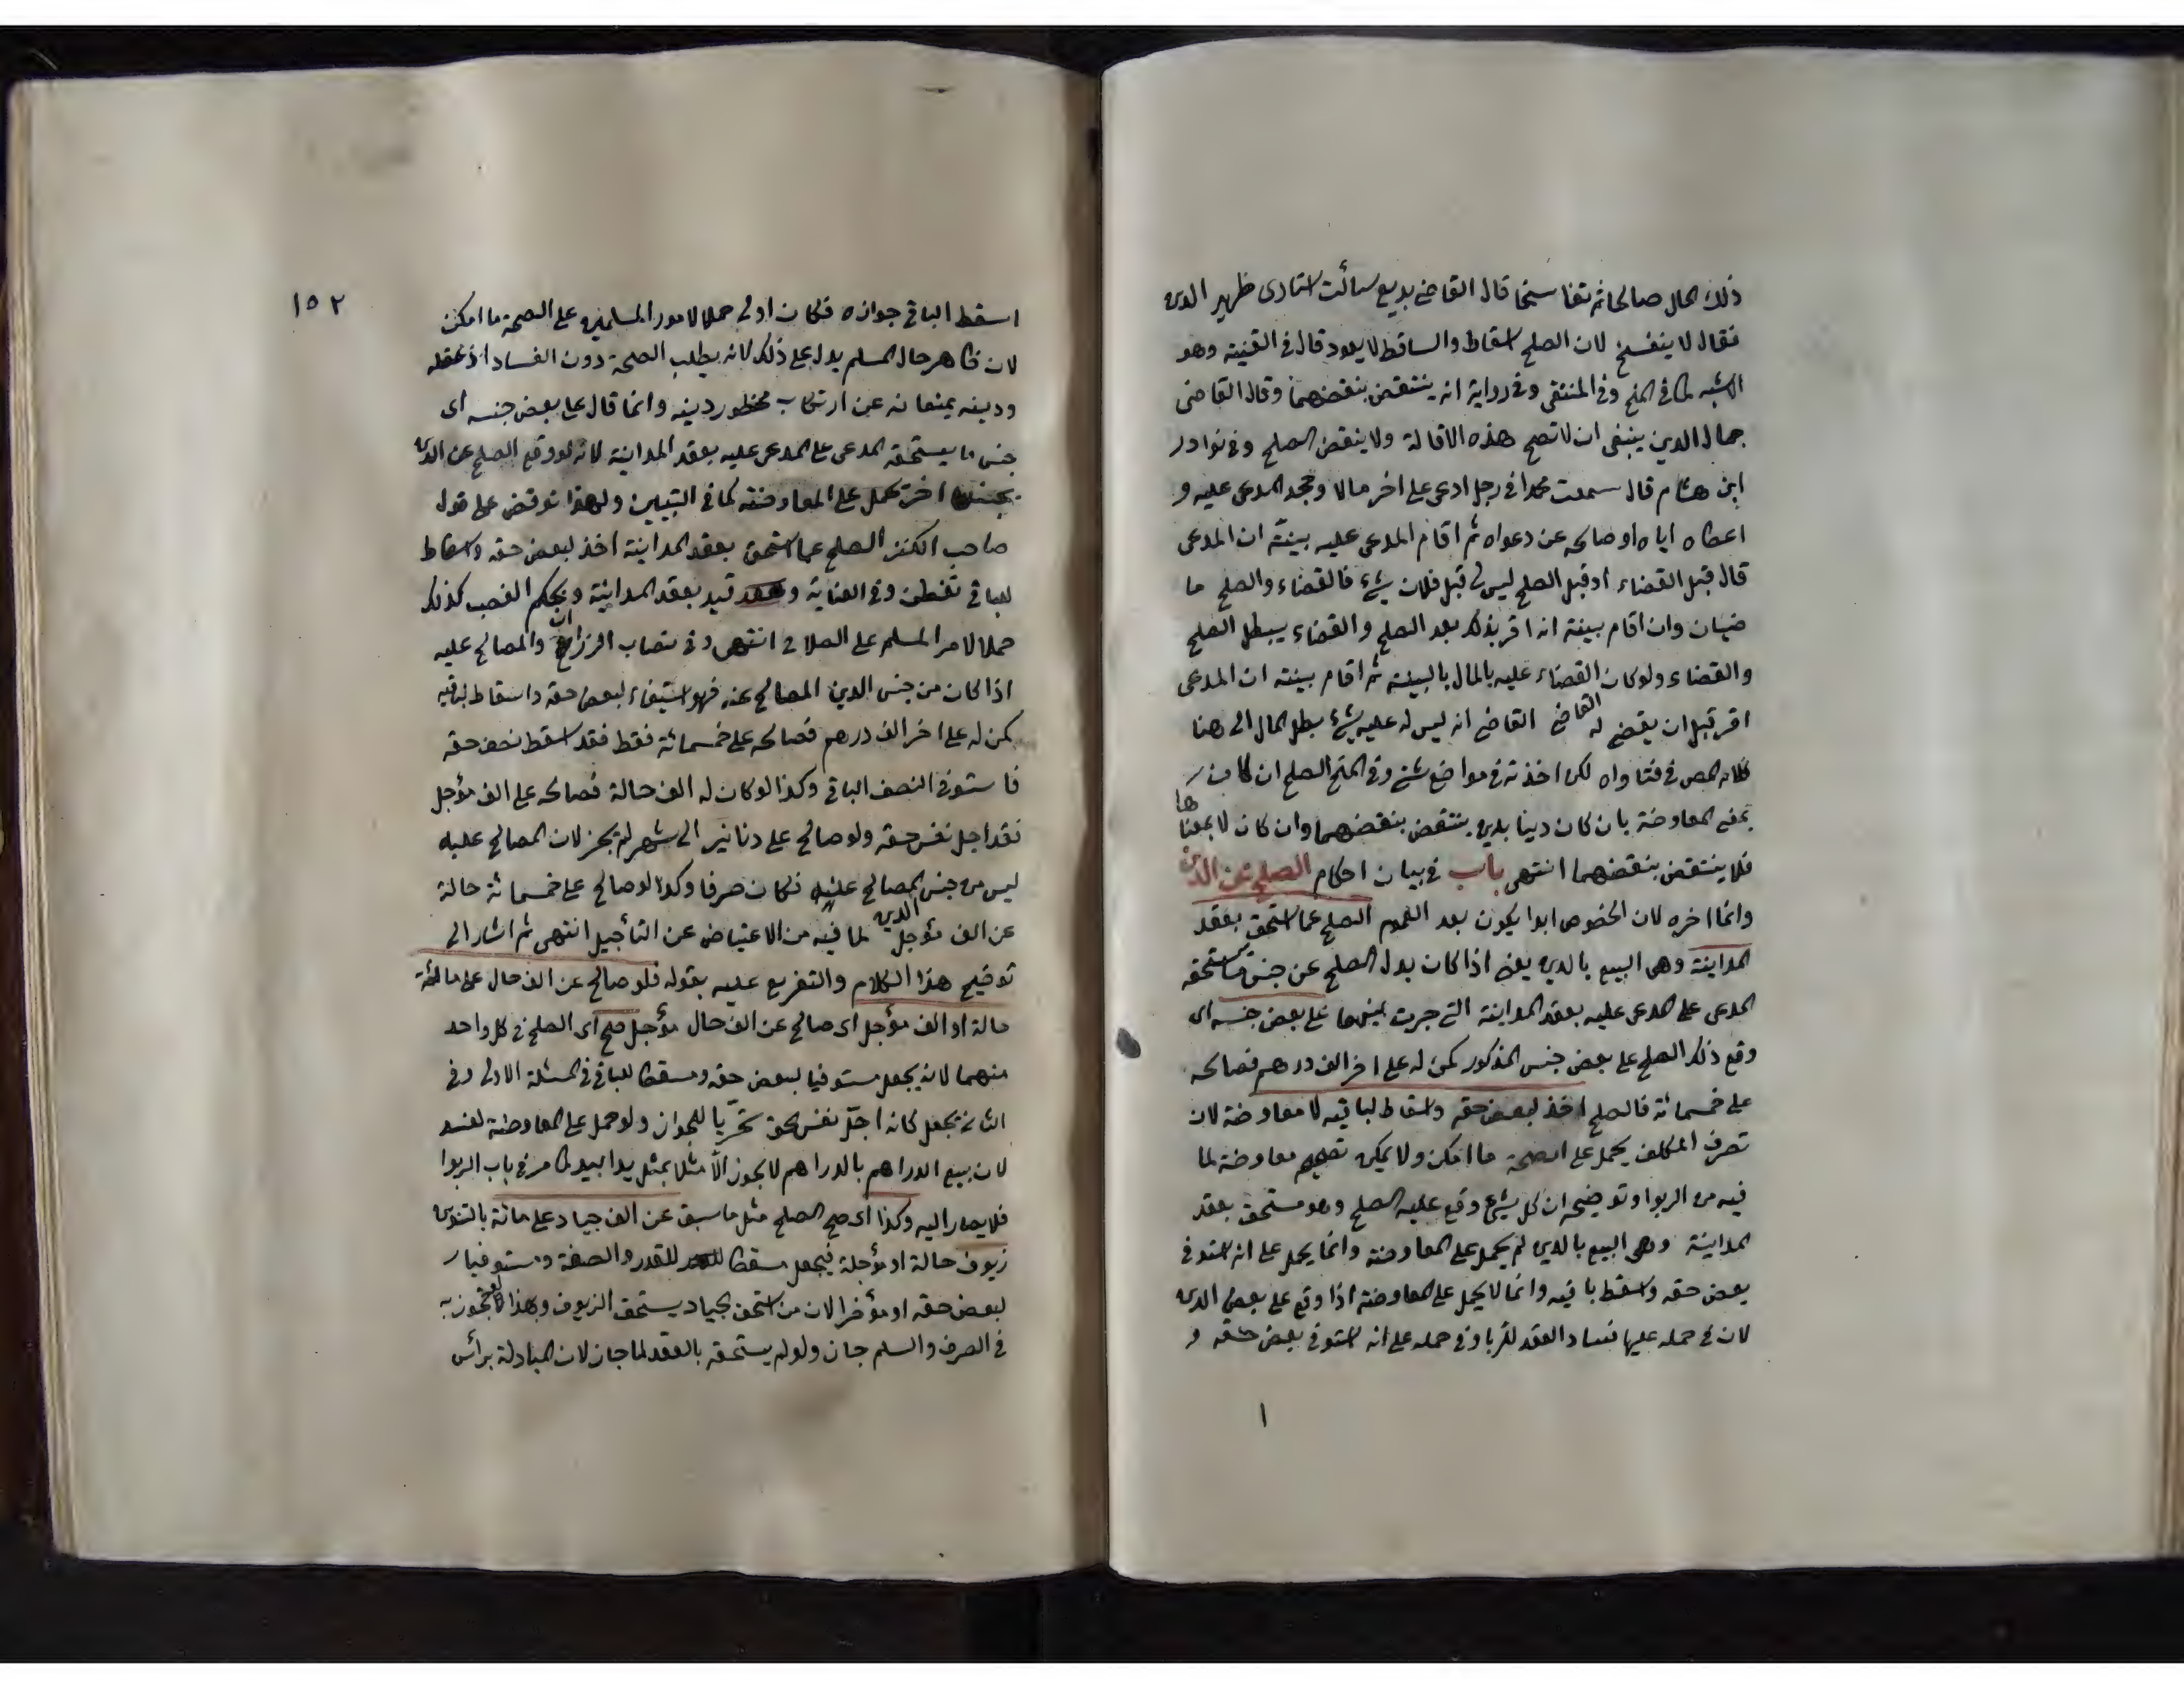 ذلك المال صالحا ثم تفاسخا قال القاضى بديع سألت استادى ظهير الدين
فقال لا ينفسخ لان الصلح اسقاط والساقط لا يعود قال فى القنية وهو
الاشبه كما فى المنح وفى المنتقى وفى رواية انه ينتقض بنقضهما وقال القاضى
جمال الدين ينبغى ان لا تصح هذه الاقالة ولا ينقض الصلح وفى نوادر
ابن هشام قال سمعت محمدا فى رجل ادعى على اخر مالا وجحد المدعى عليه و
اعطاه اياه او صالحه عن دعواه ثم اقام المدعى عليه بينة ان المدعى
قال قبل القضاء او قبل الصلح ليس لى قبل فلان شىء فالقضاء والصلح ما
ضيان وان اقام بينة انه اقر بذلك بعد الصلح والقضاء يبطل الصلح
والقضاء ولو كان القضاء عليه بالمال بالبينة ثم اقام بينة ان المدعى
اقر قبل ان يقضى له القاضى القاضى انه ليس له عليه شىء بطل المال الى هنا
كلام المص فى فتاواه لكن اخذته فى مواضع شتى وفى المنح الصلح ان كان
بمعنى المعاوضة بان كان دينا بدين ينتقض بنقضهما وان كان لا بمعناها
فلا ينتقض بنقضهما انتهى باب فى بيان احكام الصلح عن الدين
وانما اخره لان الخصوص ابدا يكون بعد العموم الصلح عما استحق بعقد
المداينة وهى البيع بالدين يعنى اذا كان بدل الصلح عن جنس ما يستحقه
المدعى على المدعى عليه بعقد المداينة التى جرت بينهما على بعض جنسه اى
وقع ذلك الصلح على بعض جنس المذكور كمن له على اخر الف درهم فصالحه
على خمسمائة فالصلح اخذ لبعض حقه واسقاط لباقيه لا معاوضة لان
تصرف المكلف يحمل على الصحة ما امكن ولا يمكن تصحيحه معاوضة لما
فيه من الربوا وتوضيحه ان كل شىء وقع عليه الصلح وهو مستحق بعقد
المداينة وهى البيع بالدين لم يحمل على المعاوضة وانما يحمل على انه استوفى
بعض حقه واسقط باقيه وانما لا يحمل على المعاوضة اذا وقع على بعض الدين
لان فى حمله عليها فساد العقد للربا وفى حمله على انه استوفى بعض حقه و
١
١٥٢
اسقط الباقى جوازه فكان اولى حملا لامور المسلمين على الصحة ما امكن
لان ظاهر حال المسلم يدل على ذلك لانه يطلب الصحة دون الفساد اذ عقله
ودينه يمنعانه عن ارتكاب محظور دينه وانما قال على بعض جنسه اى
جنس ما يستحقه المدعى على المدعى عليه بعقد المداينة لانه لو وقع الصلح عن الدين
بجنس اخر حمل على المعاوضة كما فى التبيين ولهذا نوقض على قول
صاحب الكنز الصلح عما استحق بعقد المداينة اخذ لبعض حقه واسقاط
للباقى تفطن وفى العناية قيد بعقد المداينة وبحكم الغصب كذلك
حملا لامر المسلم على الصلاح انتهى وفى نصاب والمصالح عليه
اذا كان من جنس الدين المصالح عنه فهو استيفاء لبعض حقه واسقاط لباقيه
كمن له على اخر الف درهم فصالحه على خمسمائة فقط فقد اسقط نصف حقه
فاستوفى النصف الباقى وكذا لو كان له الف حالة فصالحه على الف مؤجل
فقد اجل نفس حقه ولو صالح على دنانير الى شهر لم يجز لان المصالح عليه
ليس من جنس المصالح عليه الدين فكان صرفا وكذا لو صالح على خمسمائة حالة
عن الف مؤجل لما فيه من الاعتياض عن التأجيل انتهى ثم اشار الى
توضيح هذا الكلام والتفريع عليه بقوله فلو صالح عن الف حال على مائة
حالة او الف مؤجل اى صالح عن الف حال مؤجل صح اى الصلح فى كل واحد
منهما لانه يجعل مستوفيا لبعض حقه ومسقطا للباقى فى المسئلة الاولى وفى
الثانى يجعل كانه اجّل نفس الحق تحرّيا للجواز ولو حمل على المعاوضة لفسد
لان بيع الدراهم بالدراهم لا يجوز الّا مثلا بمثل يدا بيد كما مر فى باب الربوا
فلا يصار اليه وكذا اى صح الصلح مثل ما سبق عن الف جياد على مائة بالتنوين
زيوف حالة او مؤجلة فيجعل مسقطا للقدر والصفة ومستوفيا
لبعض حقه او مؤخرا لان من استحق الجياد يستحق الزيوف ولهذا لو تجوز به
فى الصرف والسلم جاز ولو لم يستحقه بالعقد لما جاز لان المبادلة برأس